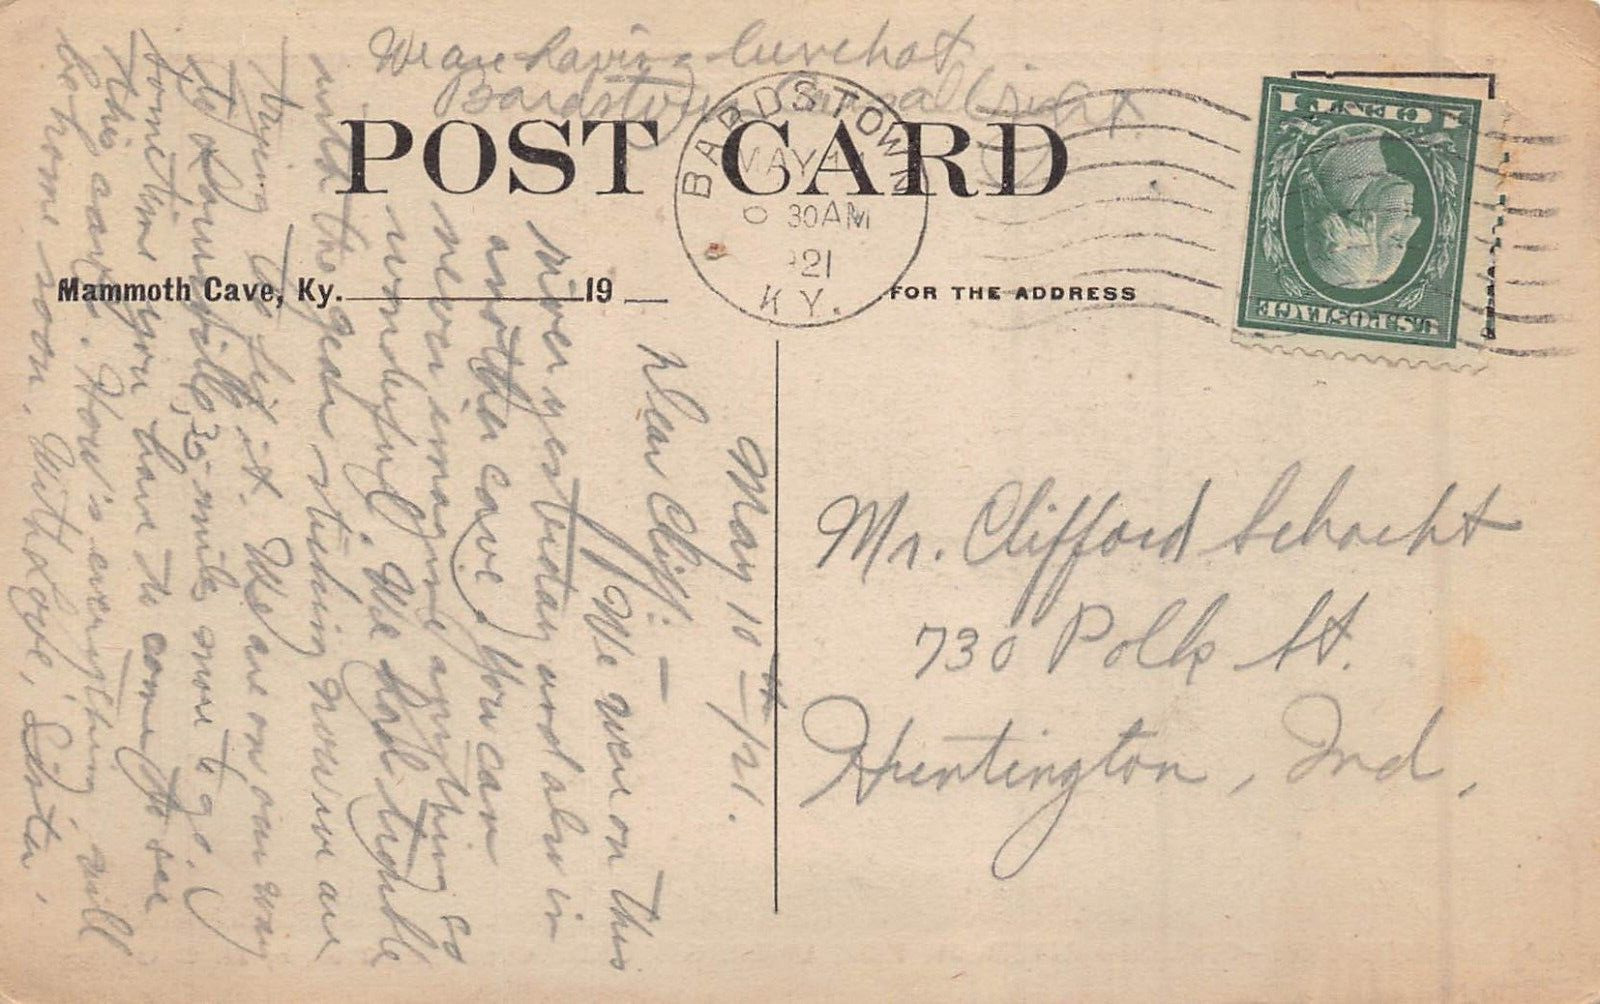 We are having lunch at
Bardstown
POST CARD
BARDSTOWN
MAY
30 AM
1921
KY.
1 CENT 1
U.S. POSTAGE
Mammoth Cave, Ky. 19
FOR THE ADDRESS
May 10th/21.
Dear Cliff: —
We were on this
river yesterday and also in
another cave. You can
never imagine anything so
wonderful. We had trouble
with the gear sticking now we are
trying to fix it. We are on our way
to Louisville, 30 miles more to go.
Sometime you have to come to see
this cave. How's everything will
be home soon. With Love, Sister.
Mr. Clifford Schacht
730 Polk St.
Huntington, Ind.